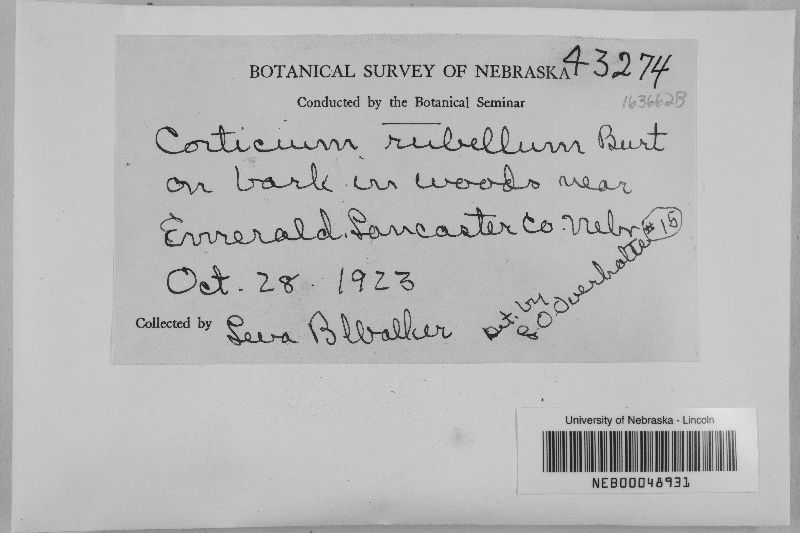 BOTANICAL SURVEY OF NEBRASKA 43274
Conducted by the Botanical Seminar 163662B
Corticium rubellum Burt
on bark in woods near
Emerald. Lancaster Co. Nebr. #15
Oct. 28. 1923
Det. by
L O Overholts
Collected by Leva B Walker
University of Nebraska - Lincoln
NEB00048931